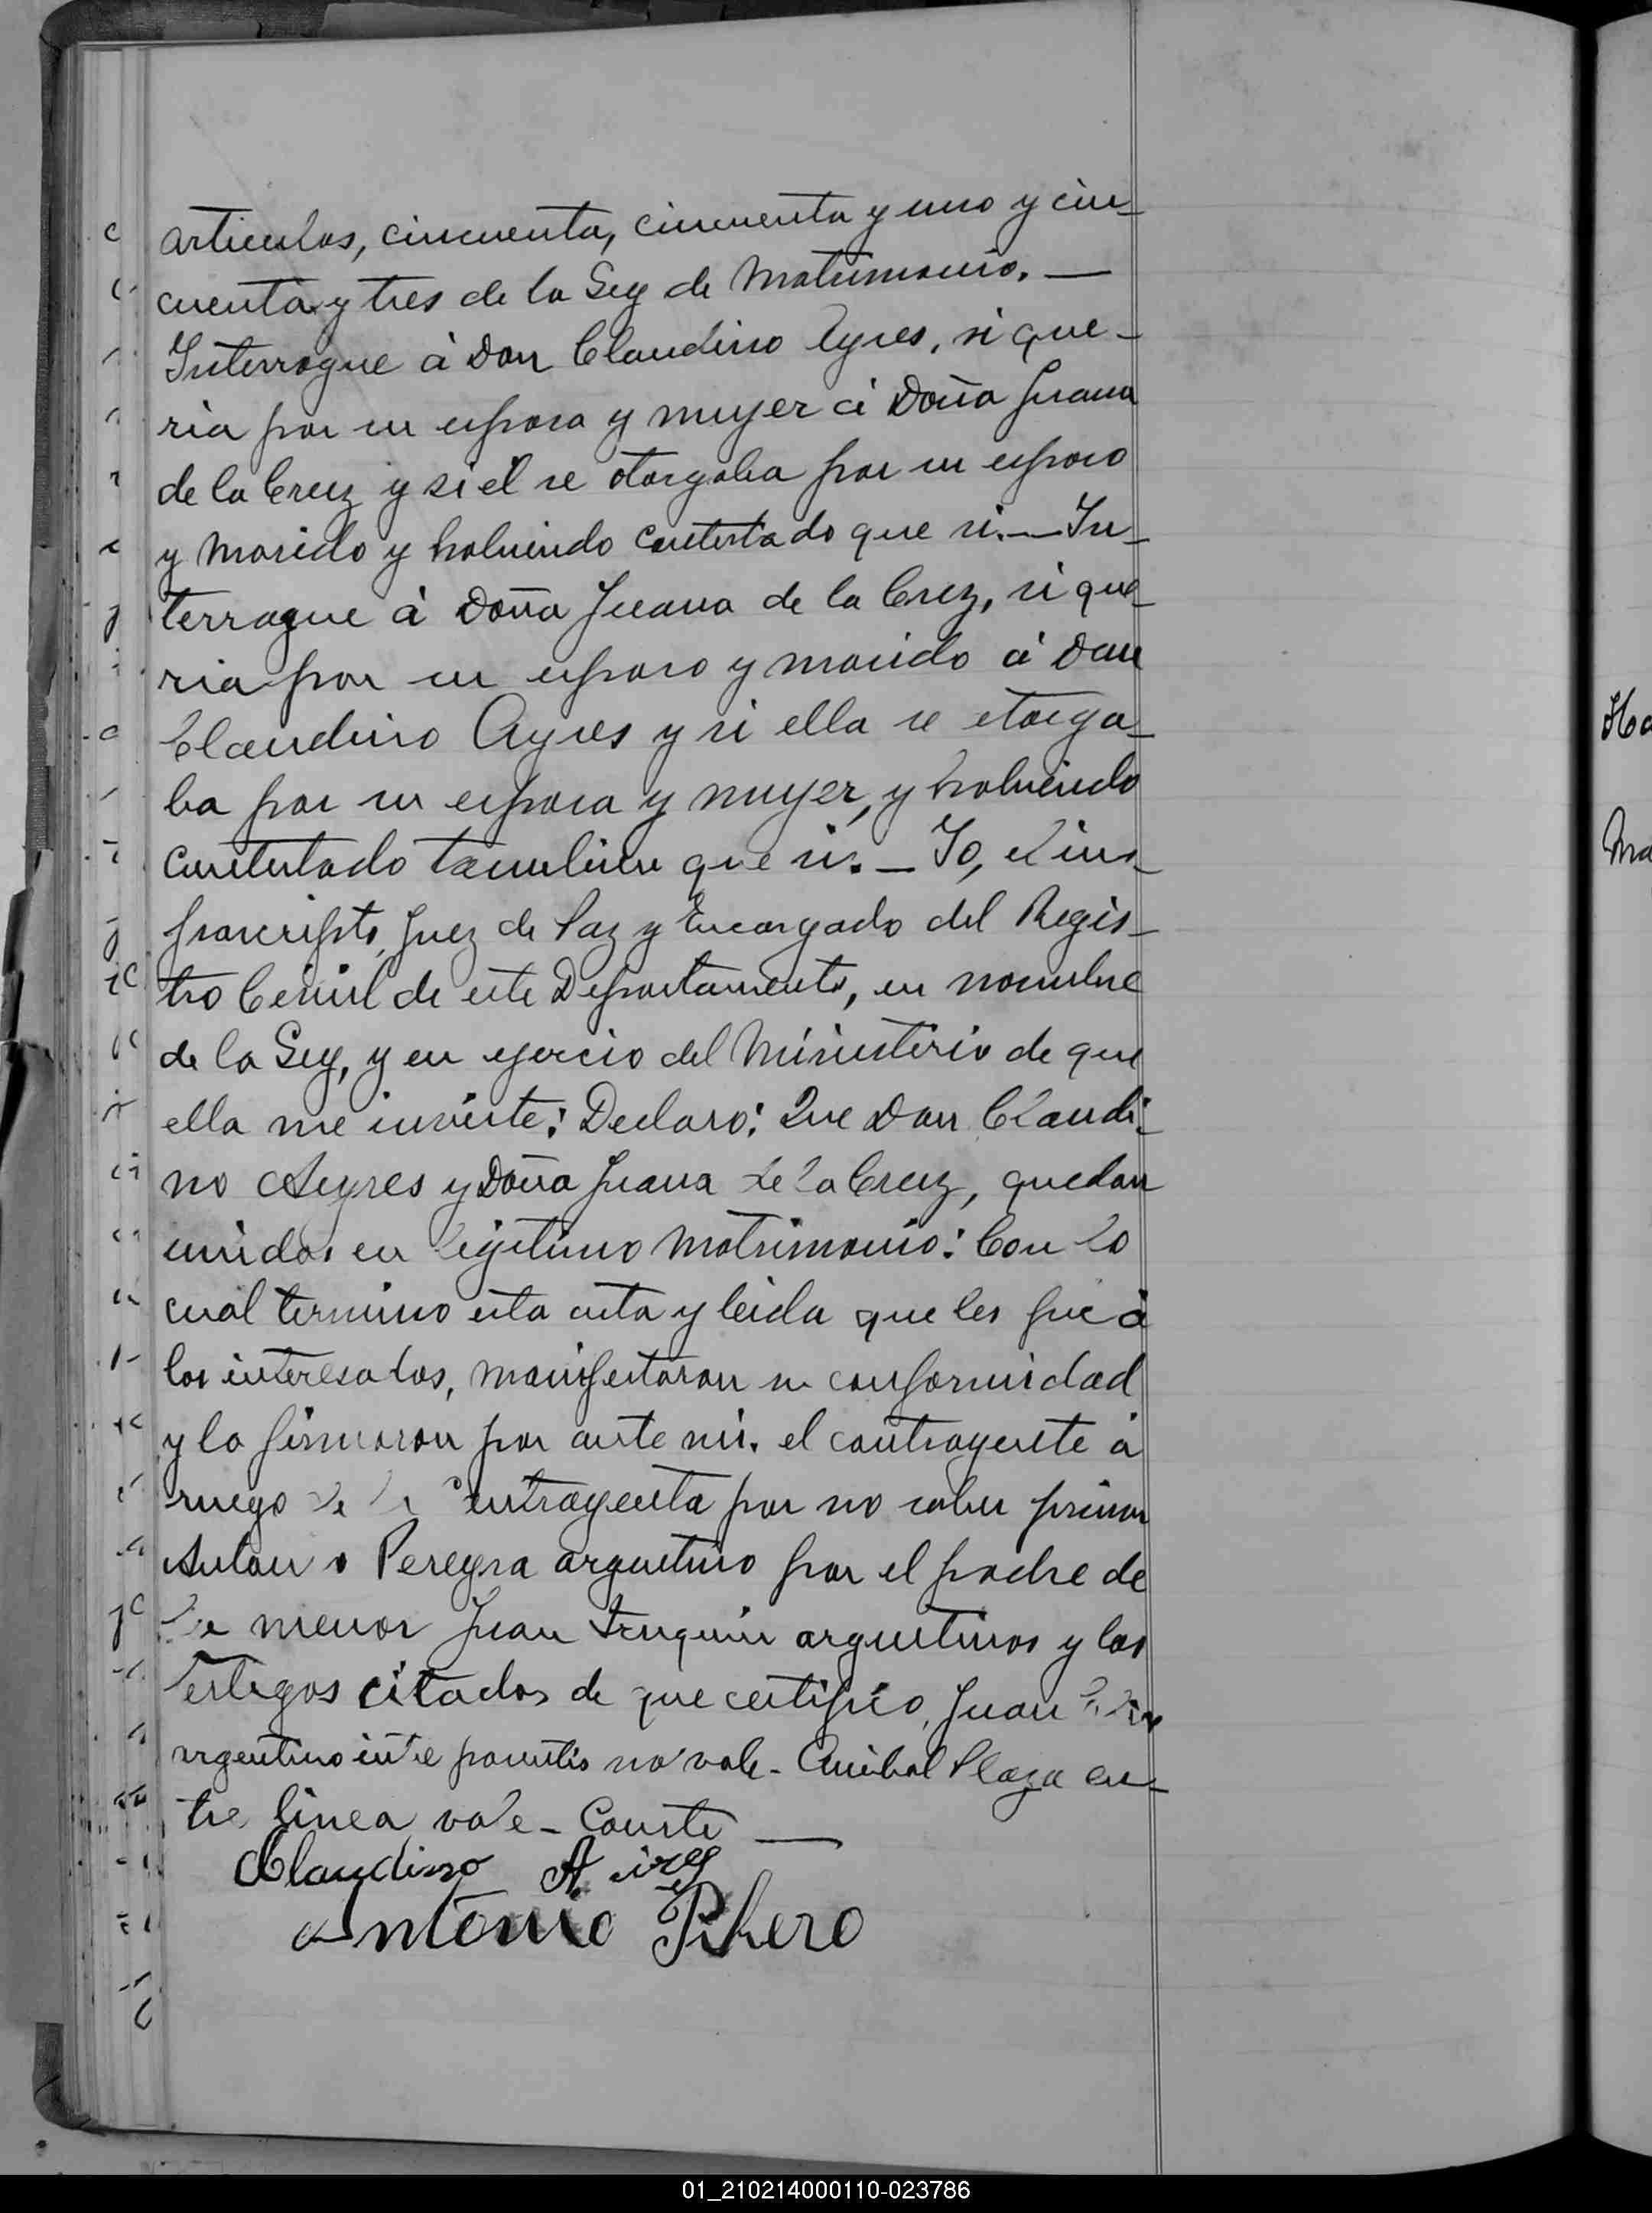 articulos, cincuenta, cincuenta y uno y cin-
cuenta y tres de la Ley de Matrimonio. —
Interrogue á Don Claudino Ayres, si que-
ria por su esposa y mujer á Doña Juana
de la Cruz y si el se otorgaba por su esposo
y marido y habiendo contestado que si. — In-
terrogue á Doña Juana de la Cruz, si que-
ria por su esposo y marido á Don
Claudino Ayres y si ella se otorga-
ba por su esposa y mujer, y habiendo
contestado tambien que si. — Yo, el ins-
frascripto, Juez de Paz y Encargado del Regis-
tro Civil de este Departamento, en nombre
de la Ley, y en ejercio del Ministerio de que
ella me inviste: Declaro: Que Don Claudi-
no Ayres y Doña Juana de la Cruz, quedan
unidos en legitimo matrimonio: Con lo
cual termino esta acta y leida que les fue á
los interesados, manifestaron su conformidad
y la firmaron por ante mi. el contrayente á
ruego de la contrayenta por no saber firmar
Antonio Pereyra argentino por el padre de
la menor Juan argentinos y los
testigos citados de que certifico, Juan
argentino entre parentis no vale - Anibal Plaza en-
tre linea vale - Conste —
Claudinno Aires
Antonio
Ha
Ma
01_210214000110-023786